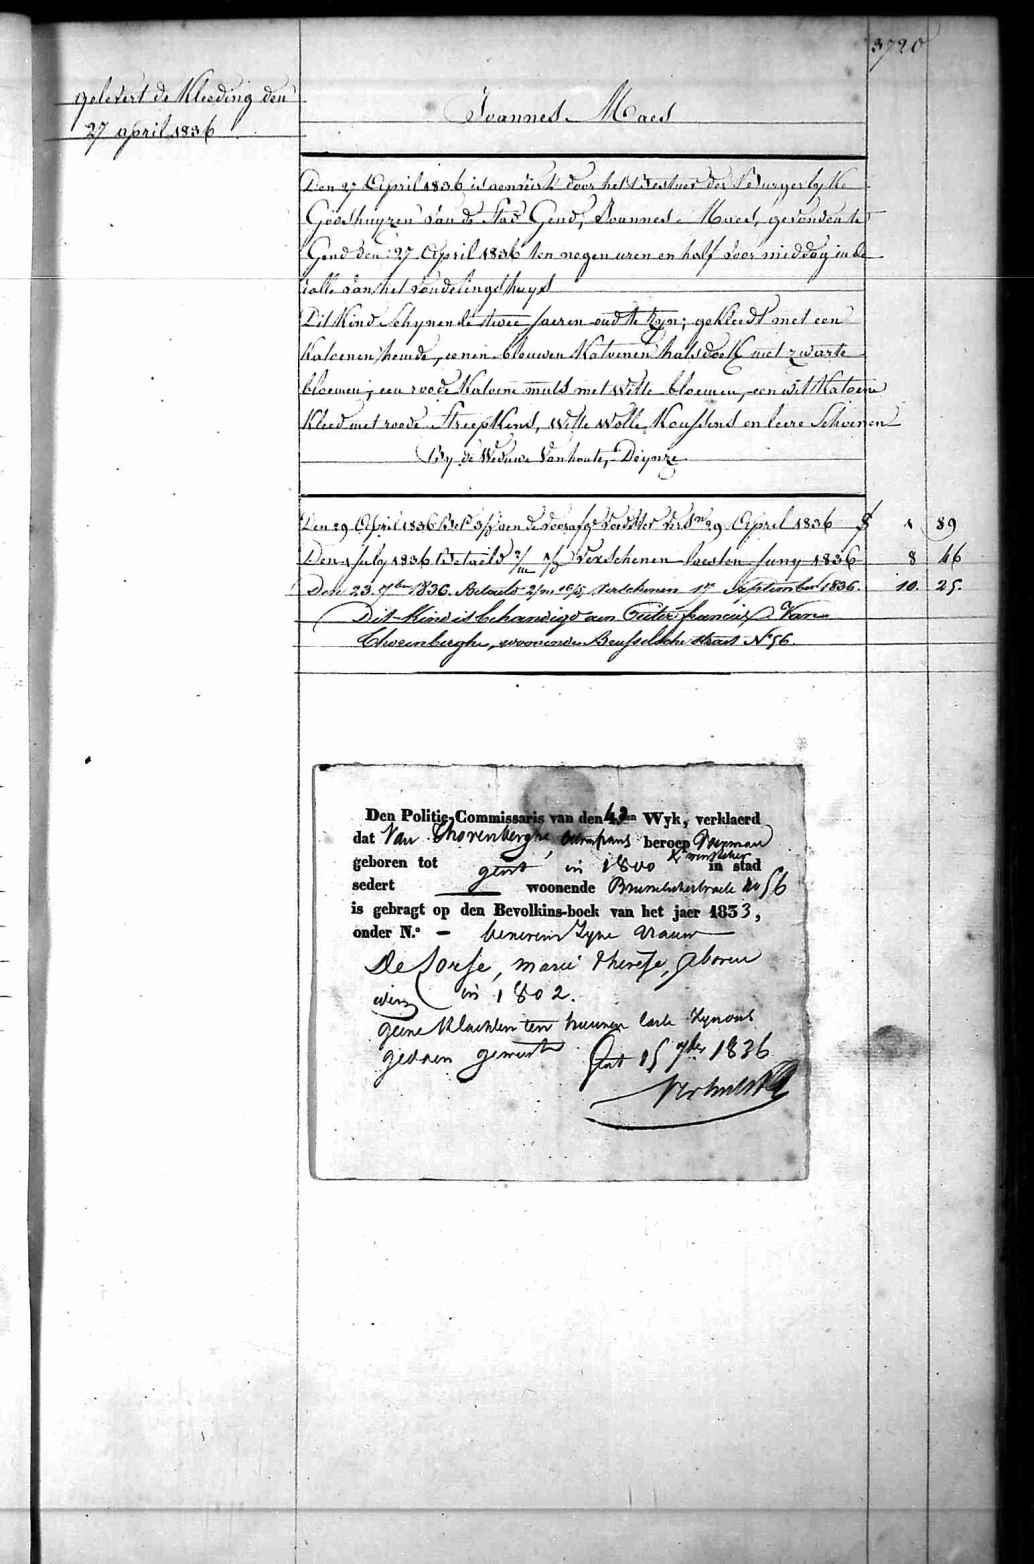 3720
gelevert de Kleeding den
27 april 1836
Joannes Maes
Den 27 April 1836 is aenveird door het Bestuer der Burgerlyke
Godshuyzen van de Stad Gend, Joannes Maes, gevonden te
Gend den 27 April 1836 ten negen uren en half voor middag in de
rolle van het vondelingshuys
Dit Kind Schynende twee jaeren oud te zyn; gekleedt met een
Katoenen hemde, eenen blauwen Katoenen halsdoek met zwarte
bloemen; een roode Katoene muts met Witte bloemen, een wit Katoene
Kleed met roode Streepkens, Witte Wolle Koussens en leere Schoenen
By de Weduwe Vanhoute, Deynze
Den 29 April 1836 Bet. aen de voedster 29 April 1836 1 89
Den July 1836 Betaeld Verschenen Laesten Juny 1836 8 46
Den 23 7ber 1836. Betaelt 2/m Verschenen September 1836. 10. 25.
Dit Kind is behandigd aen Pieter francies Van
Choeinberghe, woonende Brusselsche straet No 56.
Den Politie-Commissaris van den 4 en Wyk, verklaerd
dat Van Thorenberghe, beroep
geboren tot gent in 1800 in stad
sedert woonende Brusselschestraete No 56
is gebragt op den Bevolkins-boek van het jaer 1833,
onder N.o — benevens Zyne Vrauw
De , marie therese, geboren
in 1802.
geene Klachten ten hunnen laste Zynde
gedaen geweest Gent 15 7ber 1836